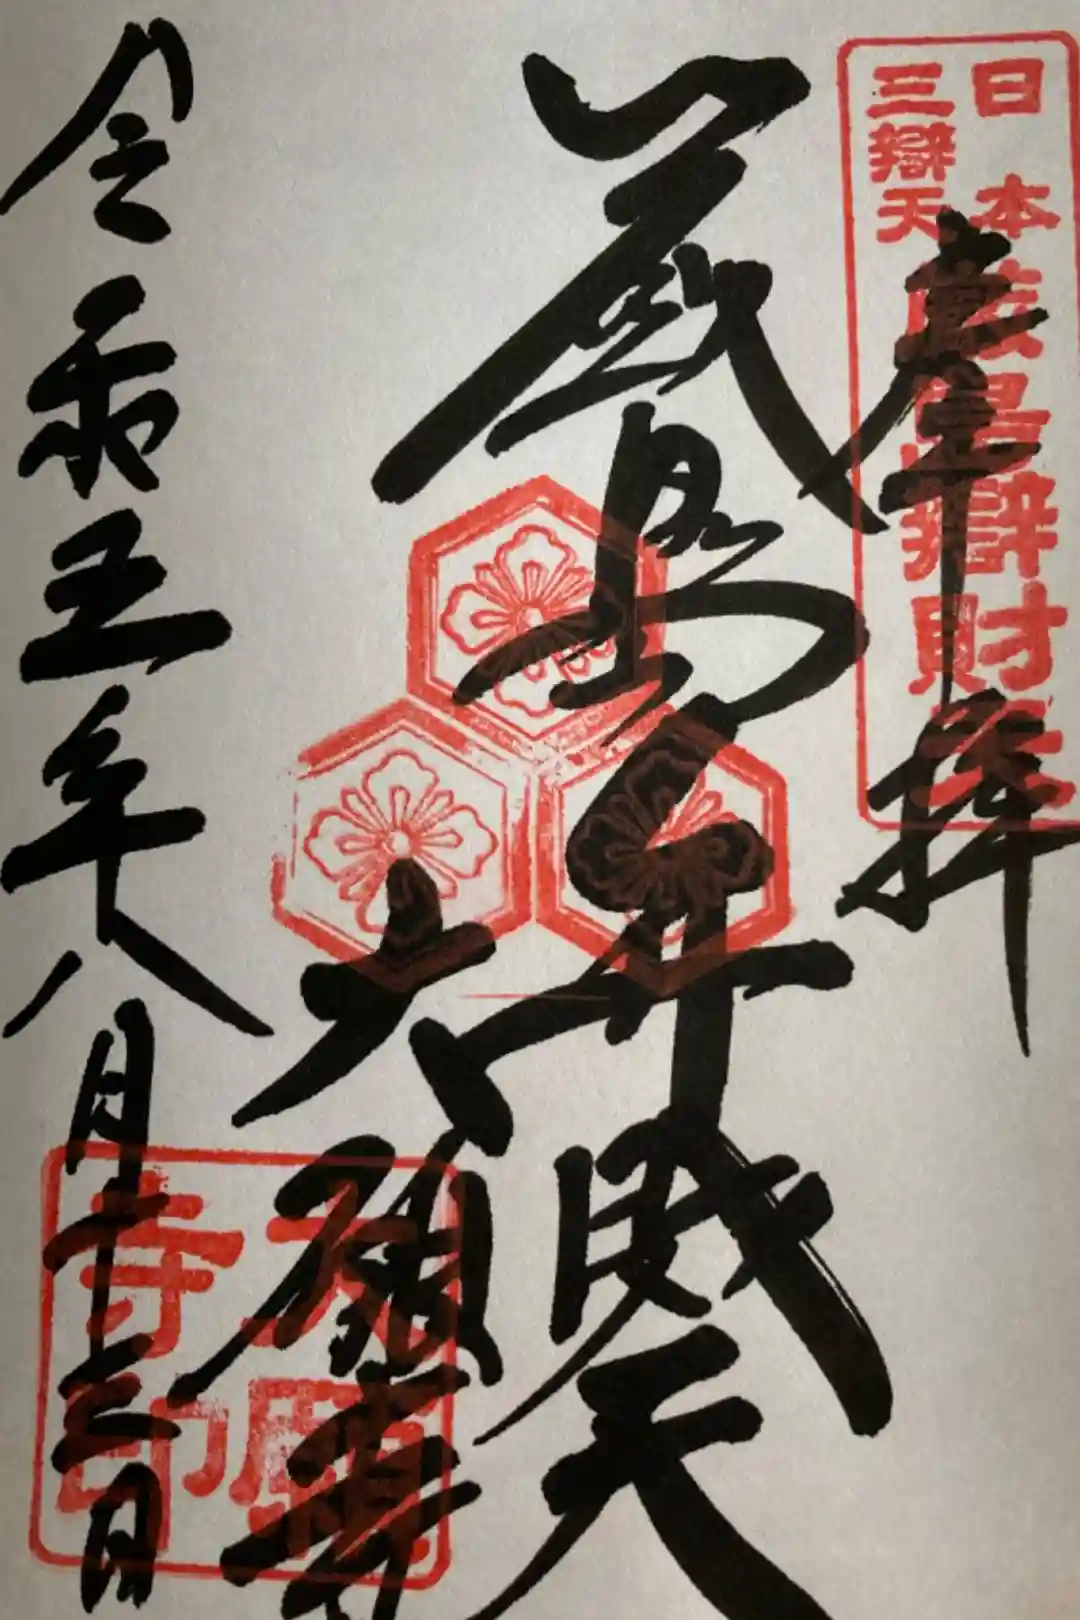 奉拝
日本
三辯天
厳島辯財天
厳島弁財天
大願寺
令和五年八月十三日
大願
寺印